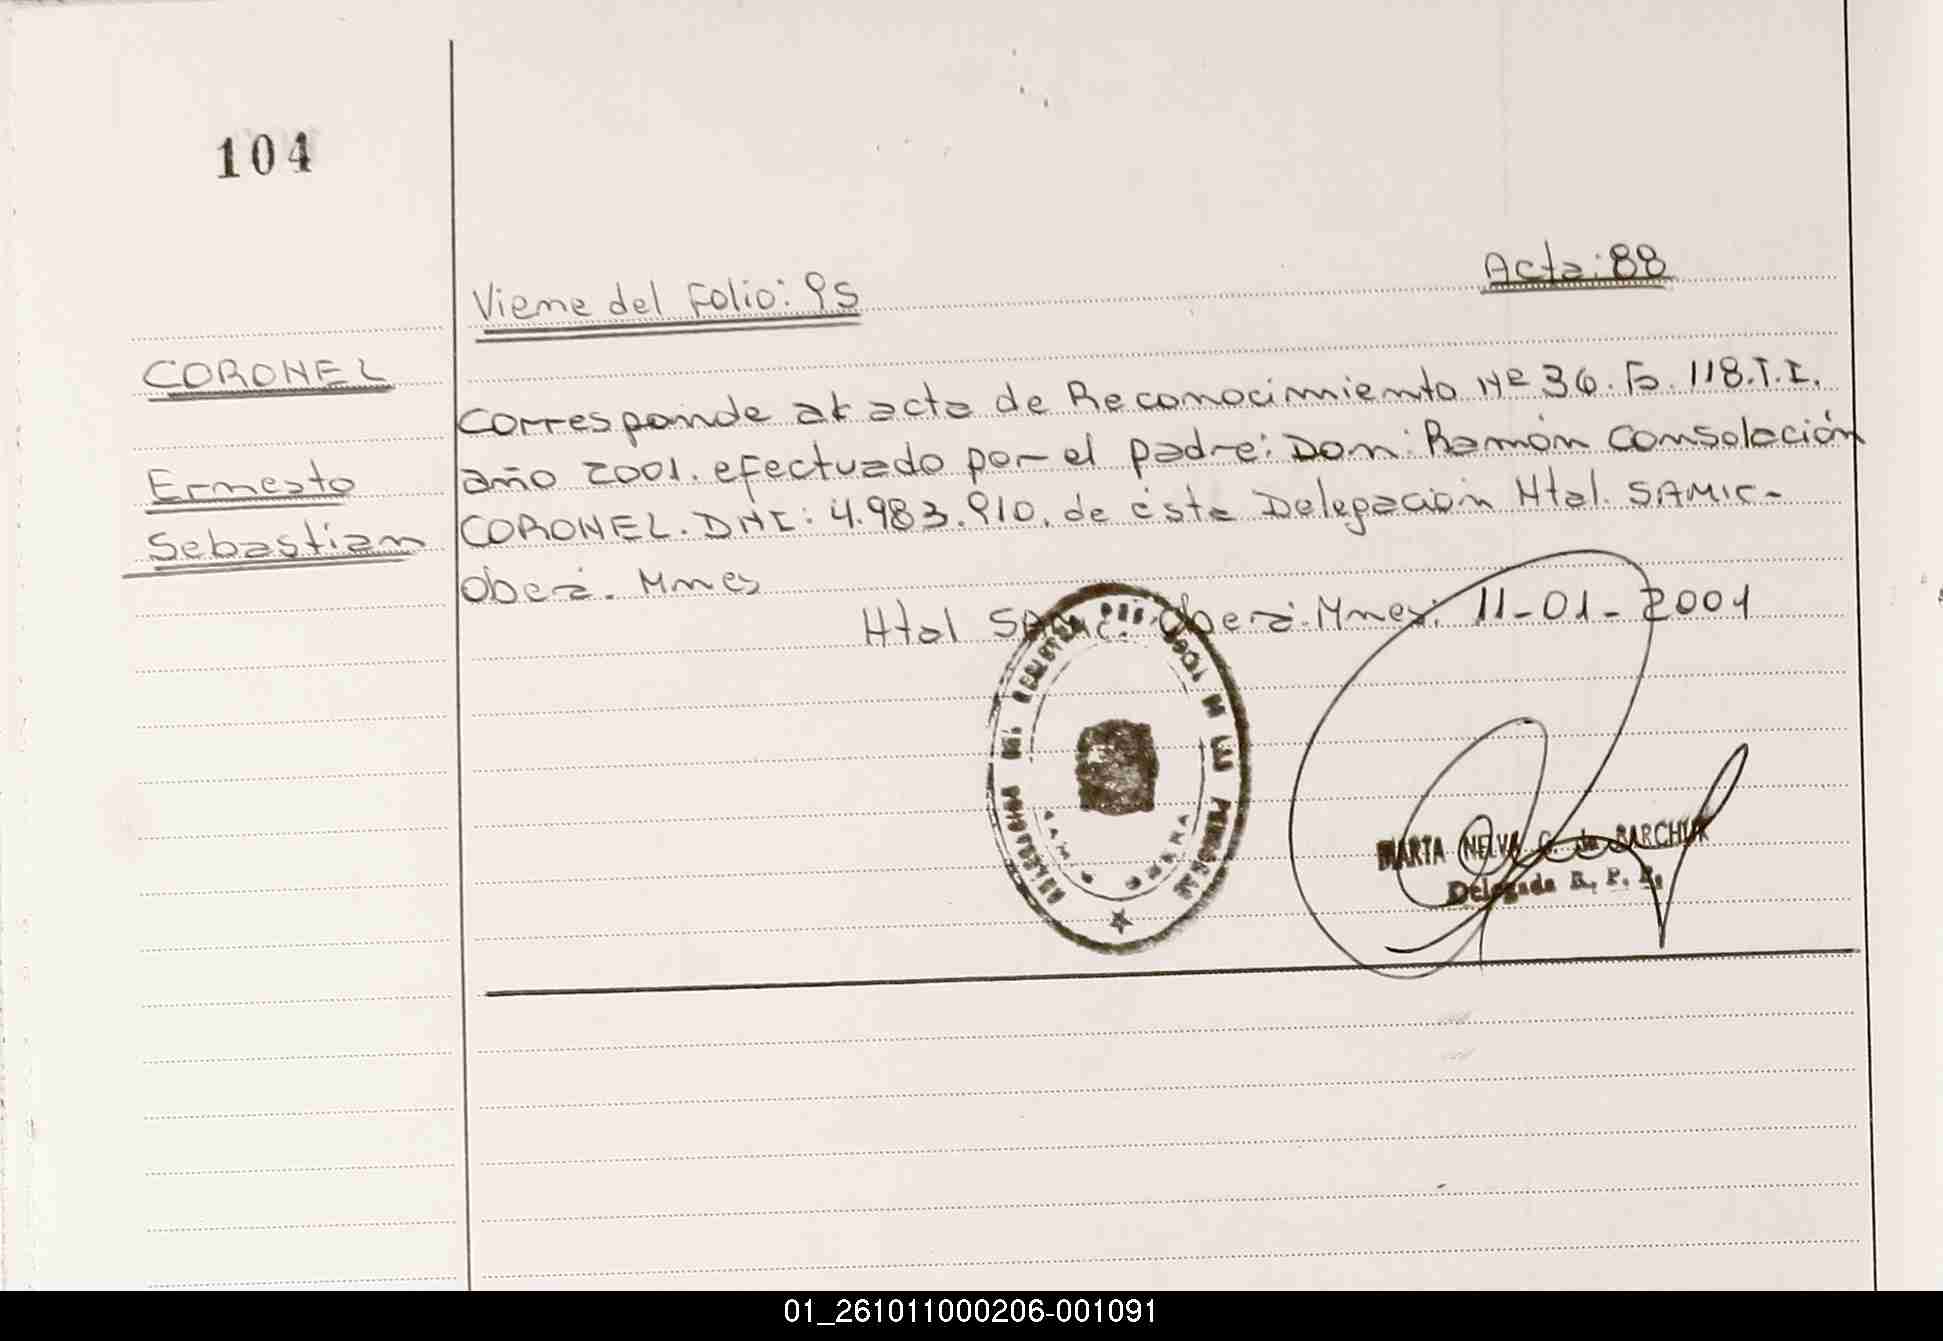 104
Viene del Folio: 95
Acta: 88
CORONEL
Ernesto
Sebastian
Corresponde al acta de Reconocimiento Nº 36. Fo. 118. T. I.
año 2001. efectuado por el padre: Don: Ramón Consolación
CORONEL. DNI: 4.983.910. de ésta Delegación Htal. SAMIC-
Oberá. Mnes
Htal SAMIC. Oberá. Mnes: 11-01-2001
DELEGACION DEL REGISTRO DE LAS PERSONAS
SAMIC OBERA
MARTA NELVA G. de BARCHUK
Delegada R. P. P.
01_261011000206-001091